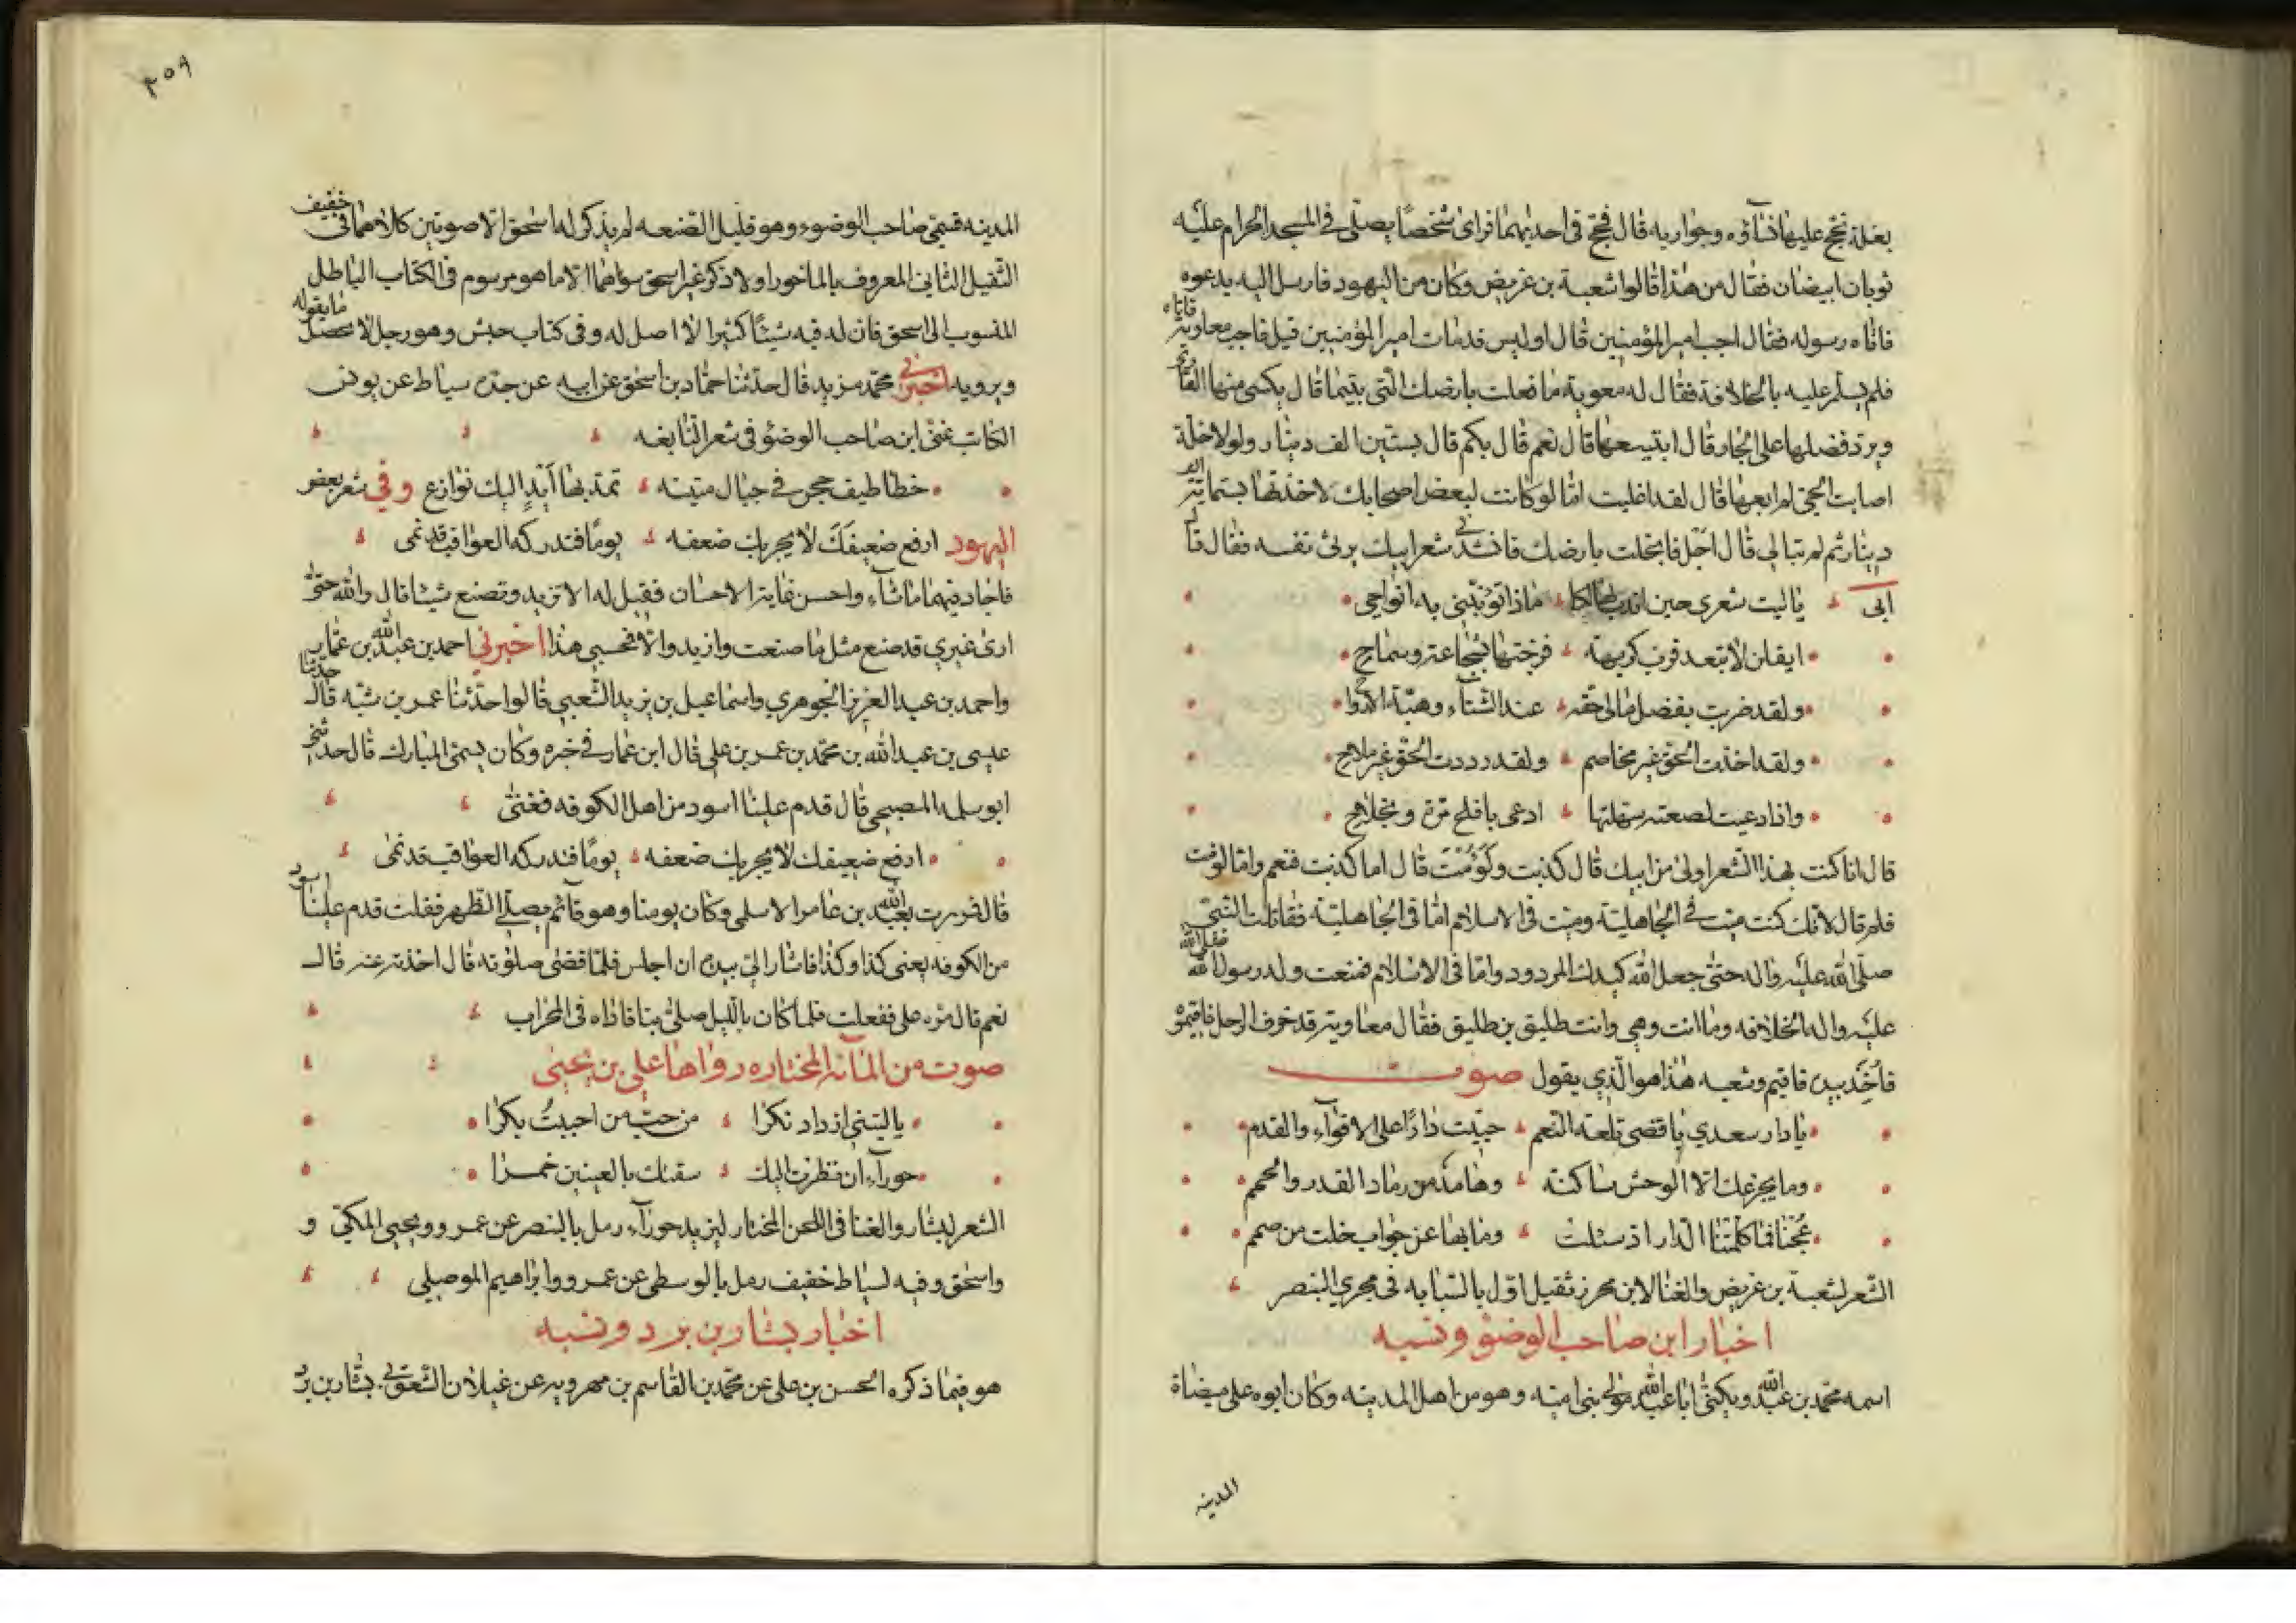 بغلة تحج عليها نساؤه وجواريه قال فحج في احديهما فراى شخصا يصلى في المسجد الحرام عليه
ثوبان ابيضان فقال من هذا قالوا شعبة بن غريض وكان من اليهود فارسل اليه يدعوه
فاتاه رسوله فقال اجب امير المؤمنين قال اوليس قد مات امير المؤمنين قيل فاجب معاوية فاتاه
فلم يسلم عليه بالخلافة فقال له معوية ما فعلت بارضك التي بتيما قال يكسى منها العارى
ويرد فضلها على الجار قال ابتبيعها قال نعم قال بكم قال بستين الف دينار ولولا خلة
اصابت الحى لم ابعها قال لقد اغليت اما لو كانت لبعض اصحابك لاخذتها بستماية الف
دينار ثم لم تبالي قال اجل فابخلت بارضك فانشدنى شعر ابيك يرثى نفسه فقال قال
ابى ياليت شعري حين اندب هالكا ماذا تؤبنني به انواحي
ايقلن لا تبعد فرب كريهة فرجتها بشجاعة وسماح
ولقد ضربت بفضل مالى حقه عند الشتاء وهبة الارواح
ولقد اخذت الحق غير مخاصم ولقد رددت الحق غير ملاح
واذا دعيت لصعبة سهلتها ادعى بافلح مرة ونجاح
قال انا كنت بهذا الشعر اولى من ابيك قال كذبت ولَؤُمْتَ قال اما كذبت فنعم واما لومت
فلم قال لانك كنت ميت في الجاهلية وميت في الاسلام اما في الجاهلية فقاتلت النبي
صلى الله عليه واله حتى جعل الله كيدك المردود واما في الاسلام فمنعت ولد رسول الله صلى الله
عليه واله الخلافه وما انت وهي وانت طليق بن طليق فقال معاوية قد خرف الرجل فاقيموه
فأُخِذ بيده فاقيم وشعبه هذا هو الذي يقول صوت
يا دار سعدي باقصى تلعة النعم حييت دارا على الاقواء والقدم
وما يجزعك الا الوحش ساكنة وهامد من رماد القدر والحمم
عُجْنا فما كلمتنا الدار اذ سئلت وما بها عن جواب خلت من صمم
الشعر لشعبة بن غريض والغنا لابن محرز ثقيل اول بالسبابه في مجري البنصر
اخبار ابن صاحب الوضؤ ونسبه
اسمه محمد بن عبد الله ويكنى ابا عبد الله مولى بني امية وهو من اهل المدينه وكان ابوه على ميضاة
المدينه
٣٥٩
المدينه فسمى صاحب الوضوء وهو قليل الصنعه لم يذكر له اسحق الا صوتين كلاهما في خفيف
الثقيل الثاني المعروف بالماخوري ولا ذكر غير اسحق سواهما الا ما هو مرسوم في الكتاب الباطل
المنسوب الى اسحق فان له فيه شيئا كثيرا لا اصل له وفي كتاب حبش وهو رجل لا يحصل ما يقوله
ويرويه اخبرنى محمد مزيد قال حدثنا حماد بن اسحق عن ابيه عن جده سياط عن يونس
الكاتب غنى ابن صاحب الوضؤ في شعر النابغه
خطاطيف حجن في حبال متينه تمد بها أَيْدٍ اليك نوازع وفي شعر بعض
اليهود ارفع ضعيفَكَ لا يحربك ضعفه يوما فتدركه العواقب قد نمى
فاجاد فيهما ما شاء واحسن غاية الاحسان فقيل له الا تزيد وتصنع شيئا قال والله حتى
ارى غيري قد صنع مثل ما صنعت وازيد والا فحسبي هذا اخبرني احمد بن عبد الله بن عمار
واحمد بن عبد العزيز الجوهري واسماعيل بن يزيد الشعبي قالوا حدثنا عمر بن شبه قال حدثنا
عيسى بن عبد الله بن محمد بن عمر بن علي قال ابن عمار في خبره وكان يسمى المبارك قال حدثني
ابو سلمه المصبحى قال قدم علينا اسود من اهل الكوفه فغنى
ارفع ضعيفك لا يحربك ضعفه يوما فتدركه العواقب قد نمى
قال فمررت بعبد الله بن عامر الاسلمي وكان يومنا وهو قائم يصلى الظهر فقلت قدم علينا اسود
من الكوفه يغنى كذا وكذا فاشار الى بيده ان اجلس فلما قضى صلوته قال اخذته عنه قال
نعم قال مره على ففعلت فلما كان بالليل صلى بنا فاذاه في المحراب
صوت من المائه المختاره رواها علي بن يحيى
ياليتني ازداد نكرا من حب من احببتُ بكرا
حوراء ان نظرت اليك سقتك بالعينين خمرا
الشعر لبشار والغنا في اللحن المختار ليزيد حوراء رمل بالبنصر عن عمرو ويحيى المكي و
واسحق وفيه لسياط خفيف رمل بالوسطى عن عمرو وابراهيم الموصلي
اخبار بشار بن برد ونسبه
هو فيما ذكره الحسن بن على عن محمد بن القاسم بن مهرويه عن غيلان الشعوبى بشار بن برد